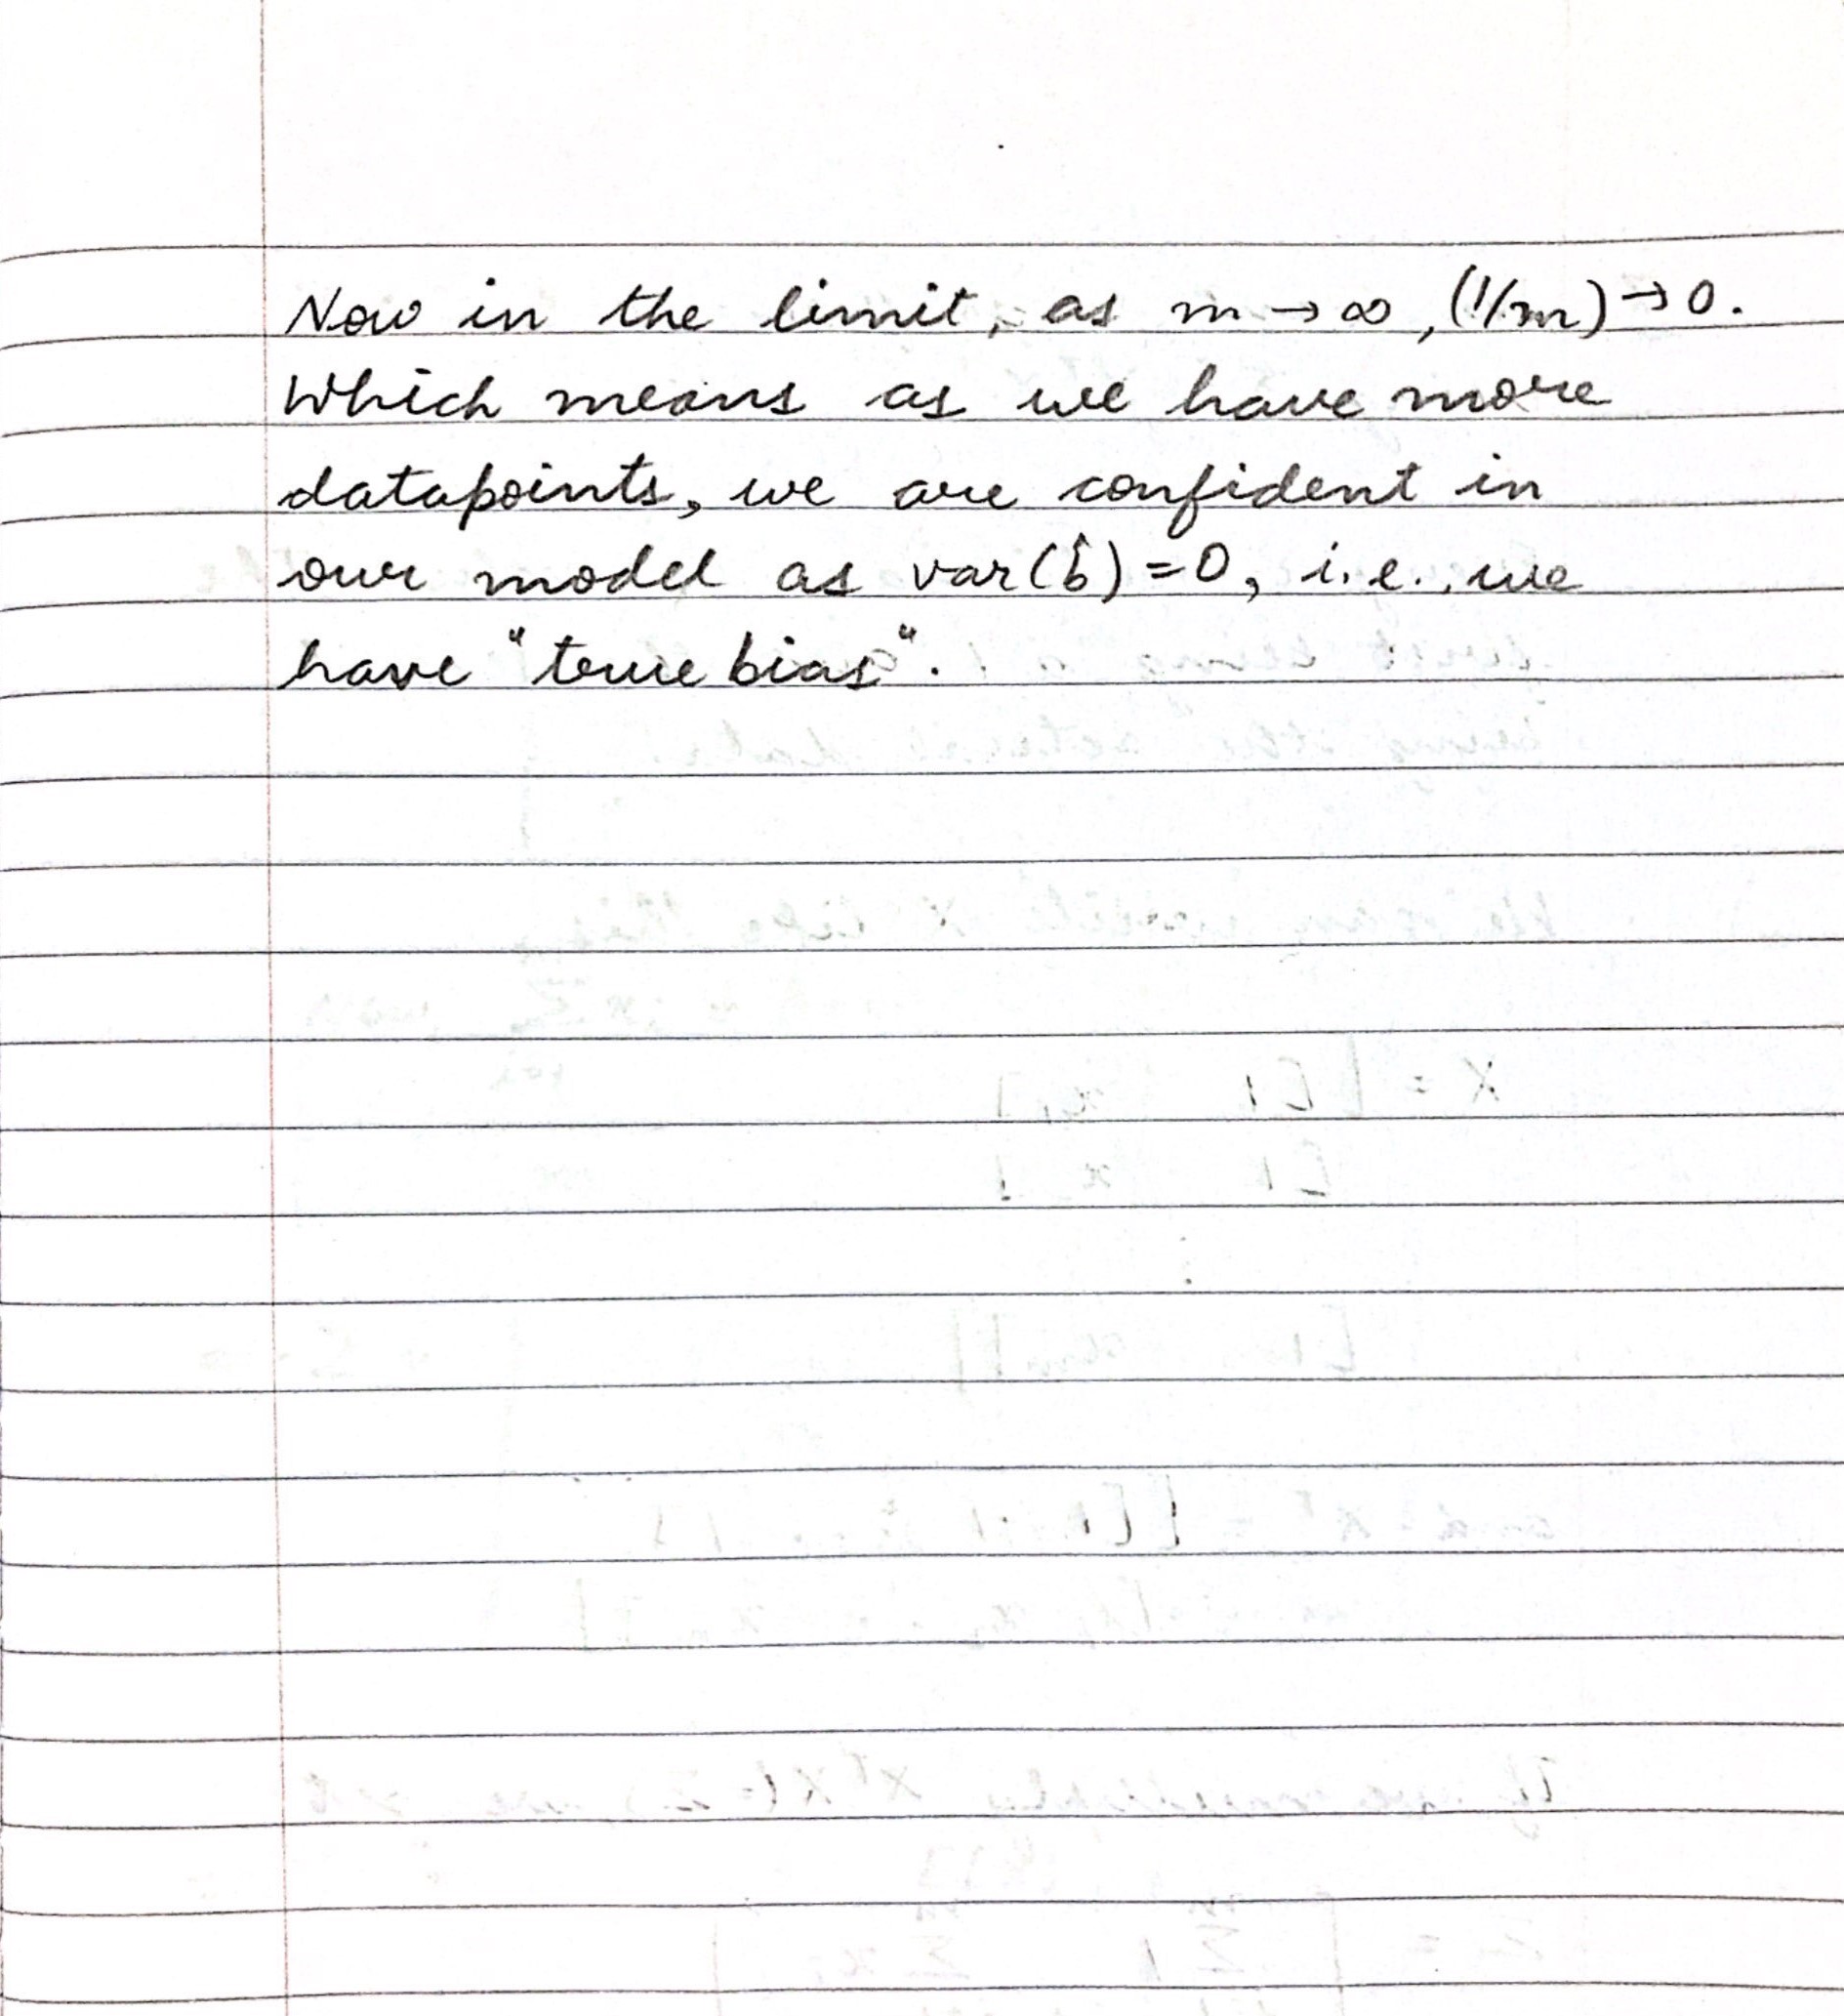 Now in the limit, as m → ∞, (1/m) → 0.
Which means as we have more
datapoints, we are confident in
our model as var(b̂) = 0, i.e., we
have "true bias".